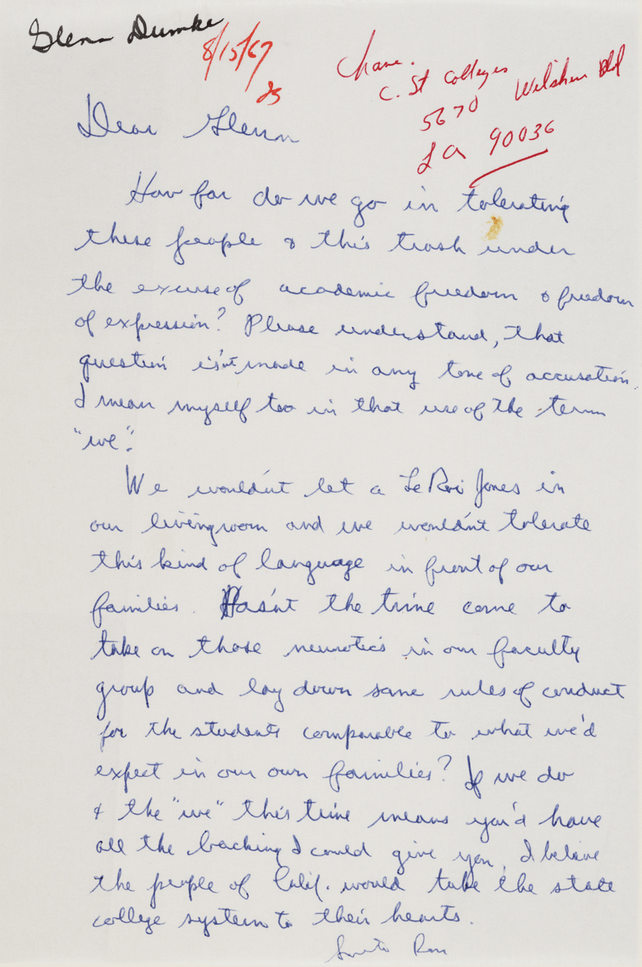 Glenn Dumke
8/15/67
Chanc.
C. St Colleges
5670 Wilshire Bld
LA 90036
Dear Glenn
How far do we go in tolerating
these people & this trash under
the excuse of academic freedom & freedom
of expression? Please understand, that
question isn't made in any tone of accusation.
I mean myself too in that use of the term
"we".
We wouldn't let a LeRoi Jones in
our livingroom and we wouldn't tolerate
this kind of language in front of our
families. Hasn't the time come to
take on those neurotics in our faculty
group and lay down some rules of conduct
for the students comparable to what we'd
expect in our own families? If we do
& the "we" this time means you'd have
all the backing I could give you, I believe
the people of Calif. would take the state
college system to their hearts.
Ron